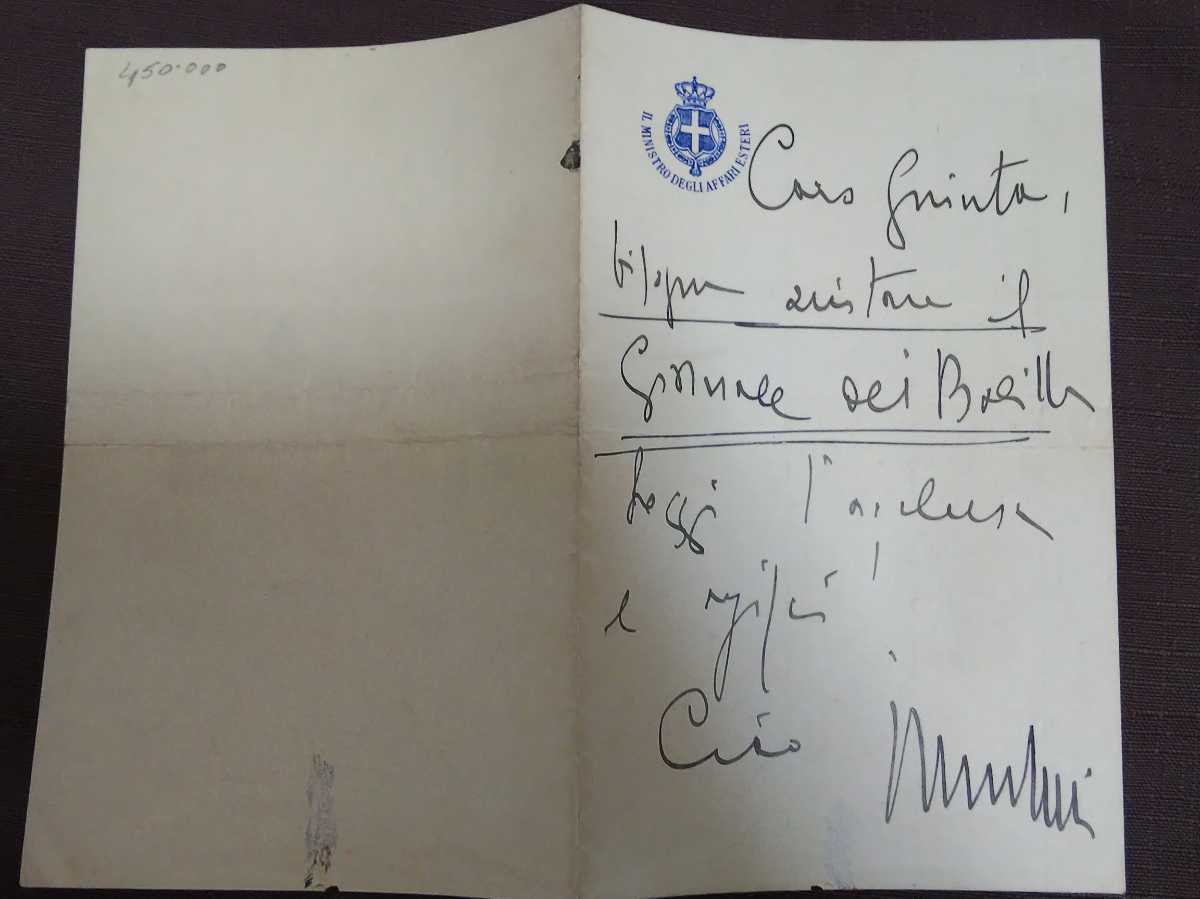 450.000
IL MINISTRO DEGLI AFFARI ESTERI
Caro Giunta,
bisogna aiutare il
Giornale dei Balilla
Leggi l'acclusa
e agisci!
Ciao
Mussolini